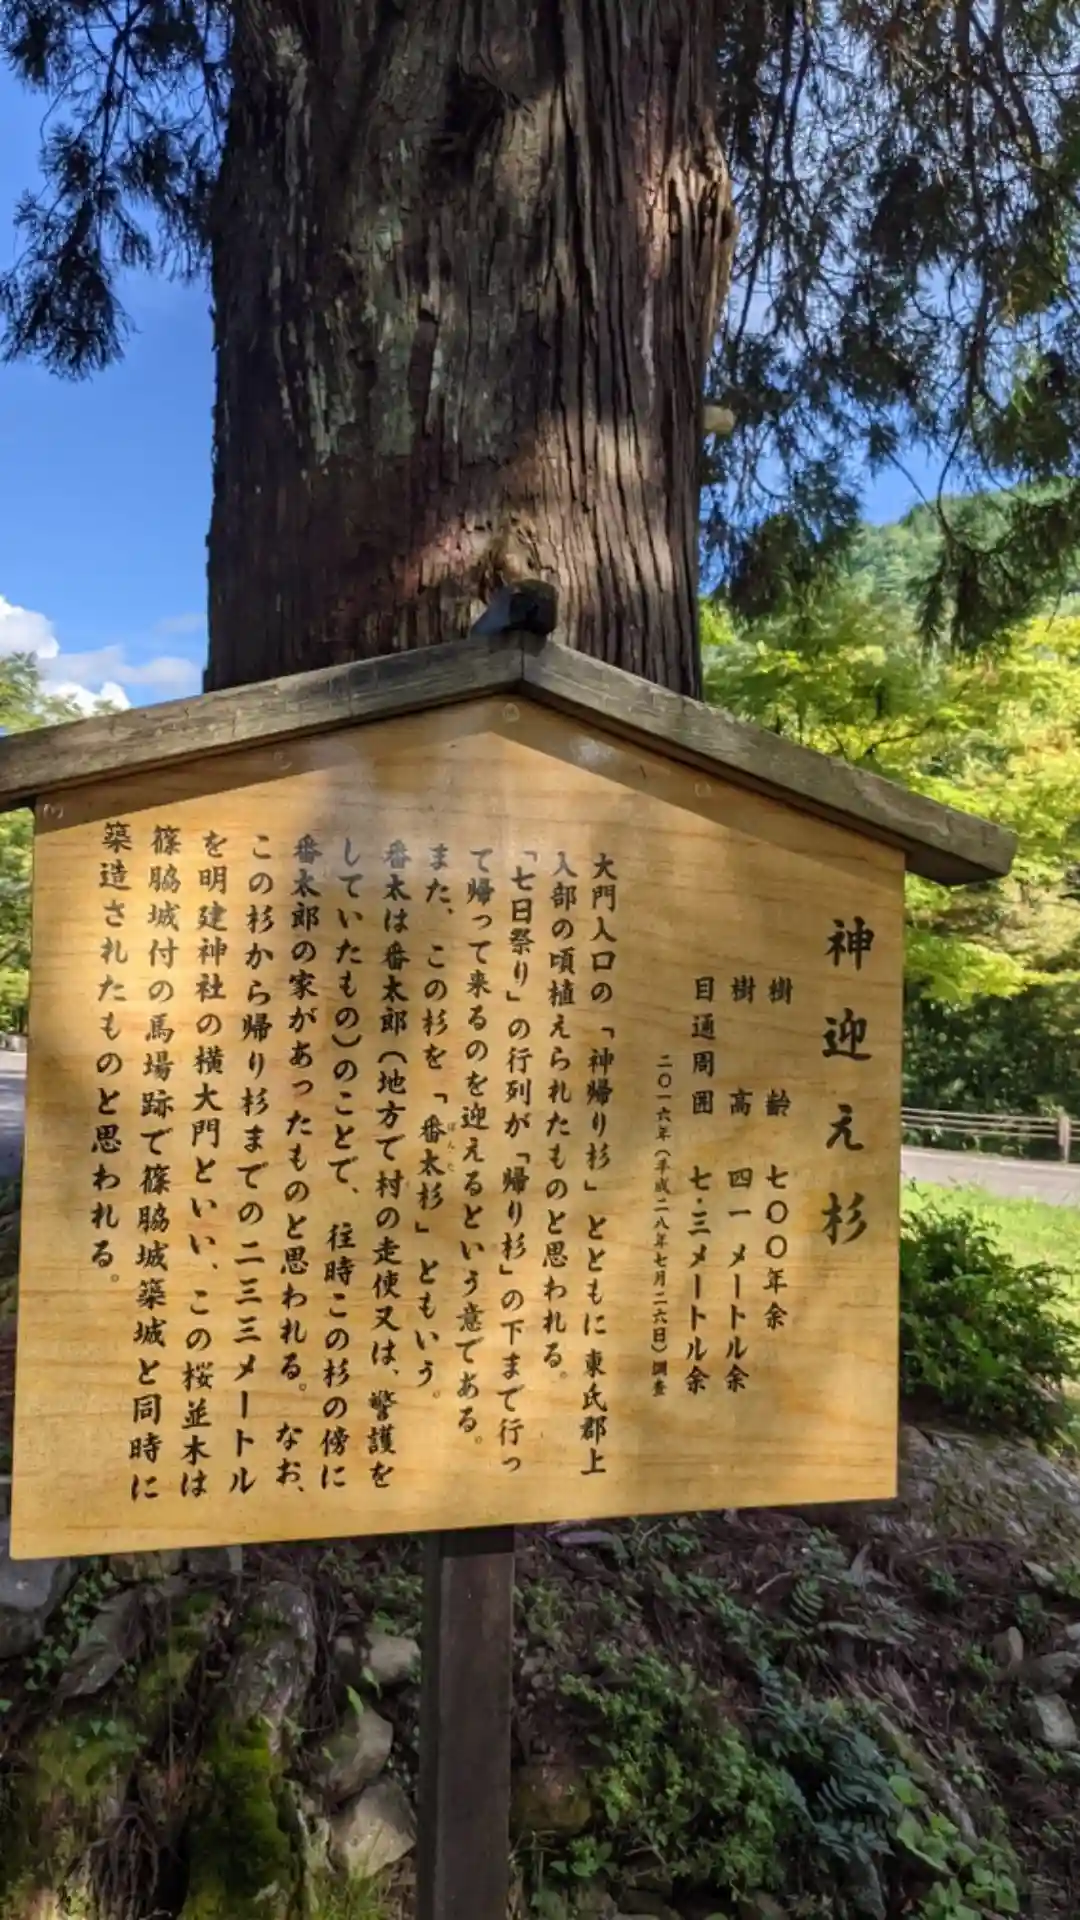 神迎え杉
樹齢 七〇〇年余
樹高 四一メートル余
目通周囲 七・三メートル余
二〇一六年(平成二八年七月二六日)調査
大門入口の「神帰り杉」とともに東氏郡上
入部の頃植えられたものと思われる。
「七日祭り」の行列が「帰り杉」の下まで行っ
て帰って来るのを迎えるという意である。
また、この杉を「番太杉」ともいう。
ばんた
番太は番太郎(地方で村の走使又は、警護を
していたもの)のことで、往時この杉の傍に
番太郎の家があったものと思われる。なお、
この杉から帰り杉までの二三三メートル
を明建神社の横大門といい、この桜並木は
篠脇城付の馬場跡で篠脇城築城と同時に
築造されたものと思われる。